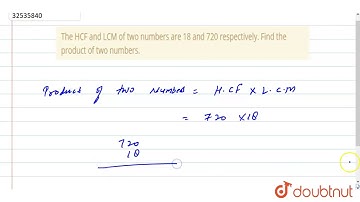 32535840
The HCF and LCM of two numbers are 18 and 720 respectively. Find the
product of two numbers.
Product of two Number = H.CF X L.C.M
= 720 X18
720
18
doubtnut